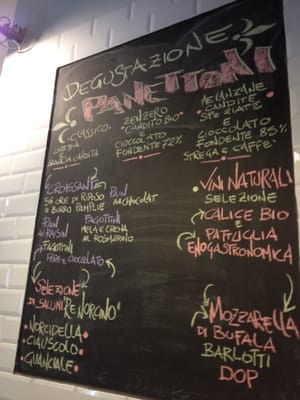 DEGUSTAZIONE
PANETTONI
CLASSICO
UVETTA
ARANCIA CANDITA
ZENZERO
CANDITO BIO
E
CIOCCOLATO
FONDENTE 72%
MELANZANE
CANDITE
SPEZIATE
E
CIOCCOLATO
FONDENTE 85%
STREGA E CAFFE'
CROISSANT
36 ORE DI RIPOSO
E BURRO PAMPLIE
PAIN
AU CHOCOLAT
PAIN
AU RAISIN
FAGOTTINI
MELA E CREMA
AL ROSMARINO
FAGOTTINI
PERE E CIOCCOLATO
SELEZIONE
DI SALUMI "RE NORCINO"
NORCIDELLA
CIAUSCOLO
GUANCIALE
VINI NATURALI
SELEZIONE
CALICE BIO
E
PATTUGLIA
ENOGASTRONOMICA
MOZZARELLA
DI BUFALA
BARLOTTI
DOP